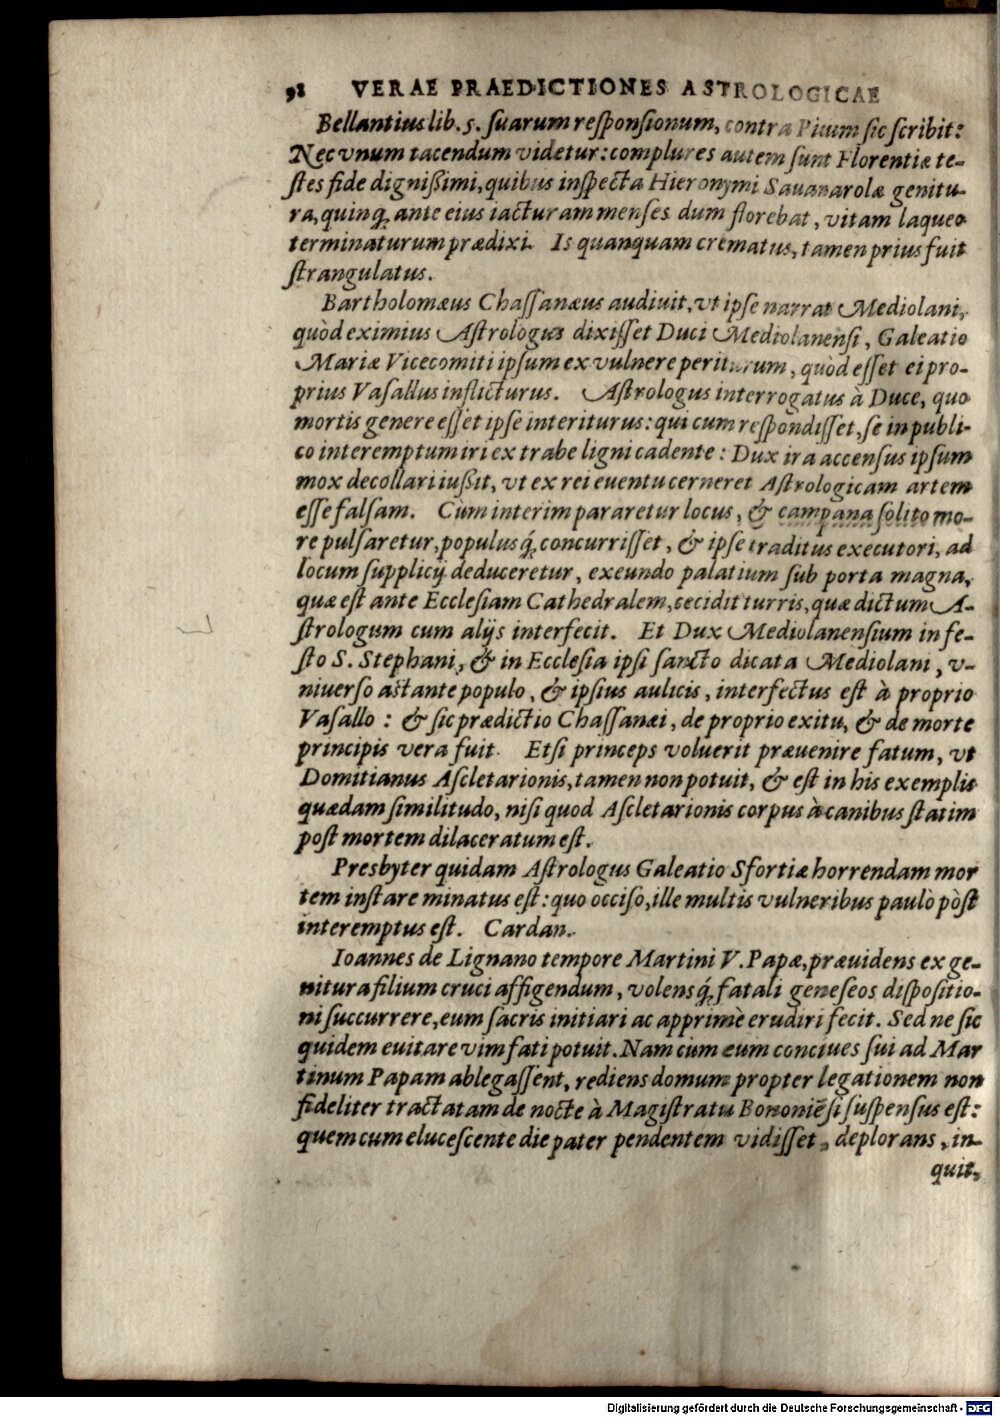 98 VERAE PRAEDICTIONES ASTROLOGICAE
Bellantius lib. 5. ſuarum reſponſionum, contra Picum ſic ſcribit:
Nec vnum tacendum videtur: complures autem ſunt Florentiæ te-
ſtes fide digniſſimi, quibus inſpecta Hieronymi Sauanarolæ genitu-
ra, quinq́; ante eius iacturam menſes dum florebat, vitam laqueo
terminaturum prædixi. Is quanquam crematus, tamen prius fuit
ſtrangulatus.
Bartholomæus Chaſſanæus audiuit, vt ipſe narrat Mediolani,
quòd eximius Aſtrologus dixiſſet Duci Mediolanenſi, Galeatio
Mariæ Vicecomiti ipſum ex vulnere periturum, quòd eſſet ei pro-
prius Vaſallus inflicturus. Aſtrologus interrogatus à Duce, quo
mortis genere eſſet ipſe interiturus: qui cum reſpondiſſet, ſe in publi-
co interemptum iri ex trabe ligni cadente: Dux ira accenſus ipſum
mox decollari iußit, vt ex rei euentu cerneret Aſtrologicam artem
eſſe falſam. Cùm interim pararetur locus, & campana ſolito mo-
re pulſaretur, populusq́; concurriſſet, & ipſe traditus executori, ad
locum ſupplicij deduceretur, exeundo palatium ſub porta magna,
quæ eſt ante Eccleſiam Cathedralem, cecidit turris, quæ dictum A-
ſtrologum cum alijs interfecit. Et Dux Mediolanenſium in fe-
ſto S. Stephani, & in Eccleſia ipſi ſancto dicata Mediolani, v-
niuerſo aſtante populo, & ipſius aulicis, interfectus eſt à proprio
Vaſallo: & ſic prædictio Chaſſanæi, de proprio exitu, & de morte
principis vera fuit. Etſi princeps voluerit præuenire fatum, vt
Domitianus Aſcletarionis, tamen non potuit, & eſt in his exemplis
quædam ſimilitudo, niſi quod Aſcletarionis corpus à canibus ſtatim
poſt mortem dilaceratum eſt.
Presbyter quidam Aſtrologus Galeatio Sfortiæ horrendam mor
tem inſtare minatus eſt: quo occiſo, ille multis vulneribus paulò pòſt
interemptus eſt. Cardan.
Ioannes de Lignano tempore Martini V. Papæ, præuidens ex ge-
nitura filium cruci affigendum, volensq́; fatali geneſeos diſpoſitio-
ni ſuccurrere, eum ſacris initiari ac apprimè erudiri fecit. Sed ne ſic
quidem euitare vim fati potuit. Nam cùm eum conciues ſui ad Mar
tinum Papam ablegaſſent, rediens domum propter legationem non
fideliter tractatam de nocte à Magiſtratu Bononiēſi ſuſpenſus eſt:
quem cum eluceſcente die pater pendentem vidiſſet, deplorans, in-
quit,
Digitalisierung gefördert durch die Deutsche Forschungsgemeinschaft - DFG